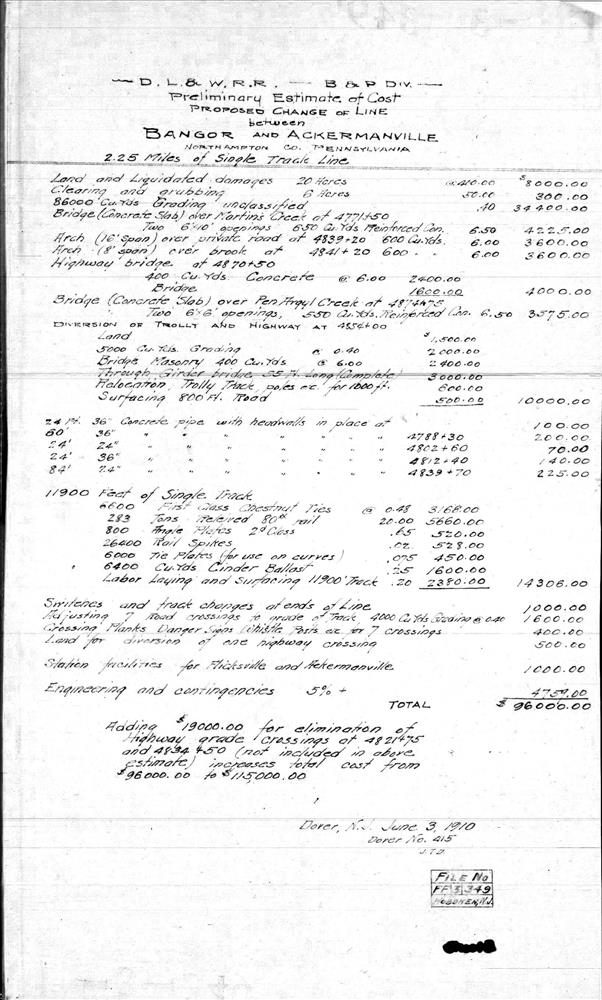 — D. L. & W. R. R. — B & P DIV. —
Preliminary Estimate of Cost
PROPOSED CHANGE OF LINE
between
BANGOR AND ACKERMANVILLE
NORTHAMPTON CO. PENNSYLVANIA
2.25 Miles of Single Track Line
Land and Liquidated damages 20 Acres @ 410.00 $8000.00
Clearing and grubbing 6 Acres 50.00 300.00
86000 Cu. Yds Grading unclassified .40 34400.00
Bridge (Concrete Slab) over Martins Creek at 4771+50
Two 6'x10' openings 650 Cu. Yds Reinforced Con. 6.50 4225.00
Arch (16' span) over private road at 4839+20 600 Cu. Yds. 6.00 3600.00
Arch (8' span) over brook at 4841+20 600 " " 6.00 3600.00
Highway bridge at 4870+50
400 Cu. Yds. Concrete @ 6.00 2400.00
Bridge 1600.00 4000.00
Bridge (Concrete Slab) over Pen Argyl Creek at 4874+75
Two 6'x6' openings, 550 Cu. Yds. Reinforced Con. 6.50 3575.00
DIVERSION OF TROLLY AND HIGHWAY AT 4854+00
Land $1,500.00
5000 Cu. Yds. Grading @ 0.40 2000.00
Bridge Masonry 400 Cu. Yds @ 6.00 2400.00
Through Girder bridge 55 Ft. Long (Complete) 3000.00
Relocation, Trolly Track, poles etc. for 1000 ft. 600.00
Surfacing 800 Ft. Road 500.00 10000.00
24 Ft. 36" Concrete pipe with headwalls in place at 100.00
60' 36" " " " " " " 4788+30 200.00
24' 24" " " " " " " 4802+60 70.00
24' 36" " " " " " " 4812+40 140.00
84' 24" " " " " " " 4839+70 225.00
11900 Feet of Single Track
6600 First Class Chestnut Ties @ 0.48 3168.00
283 Tons Relieved 80# rail 20.00 5660.00
800 Angle Plates 2d Class .65 520.00
26400 Rail Spikes .02 528.00
6000 Tie Plates (for use on curves) .075 450.00
6400 Cu. Yds Cinder Ballast .25 1600.00
Labor Laying and Surfacing 11900' Track .20 2380.00 14306.00
Switches and track changes at ends of Line 1000.00
Adjusting 7 Road crossings to grade of Track 4000 Cu Yds Grading @ 0.40 1600.00
Crossing Planks Danger Signs Whistle Posts etc. for 7 crossings 400.00
Land for diversion of one highway crossing 500.00
Station facilities for Flicksville and Ackermanville 1000.00
Engineering and contingencies 5% + 4759.00
TOTAL $96000.00
Adding $19000.00 for elimination of
Highway grade crossings at 4821+75
and 4834+50 (not included in above
estimate) increases total cost from
$96000.00 to $115,000.00
Dover, N.J. June 3, 1910
Dover No. 415
J.T.D.
FILE No
FF 3,349
HOBOKEN, N.J.